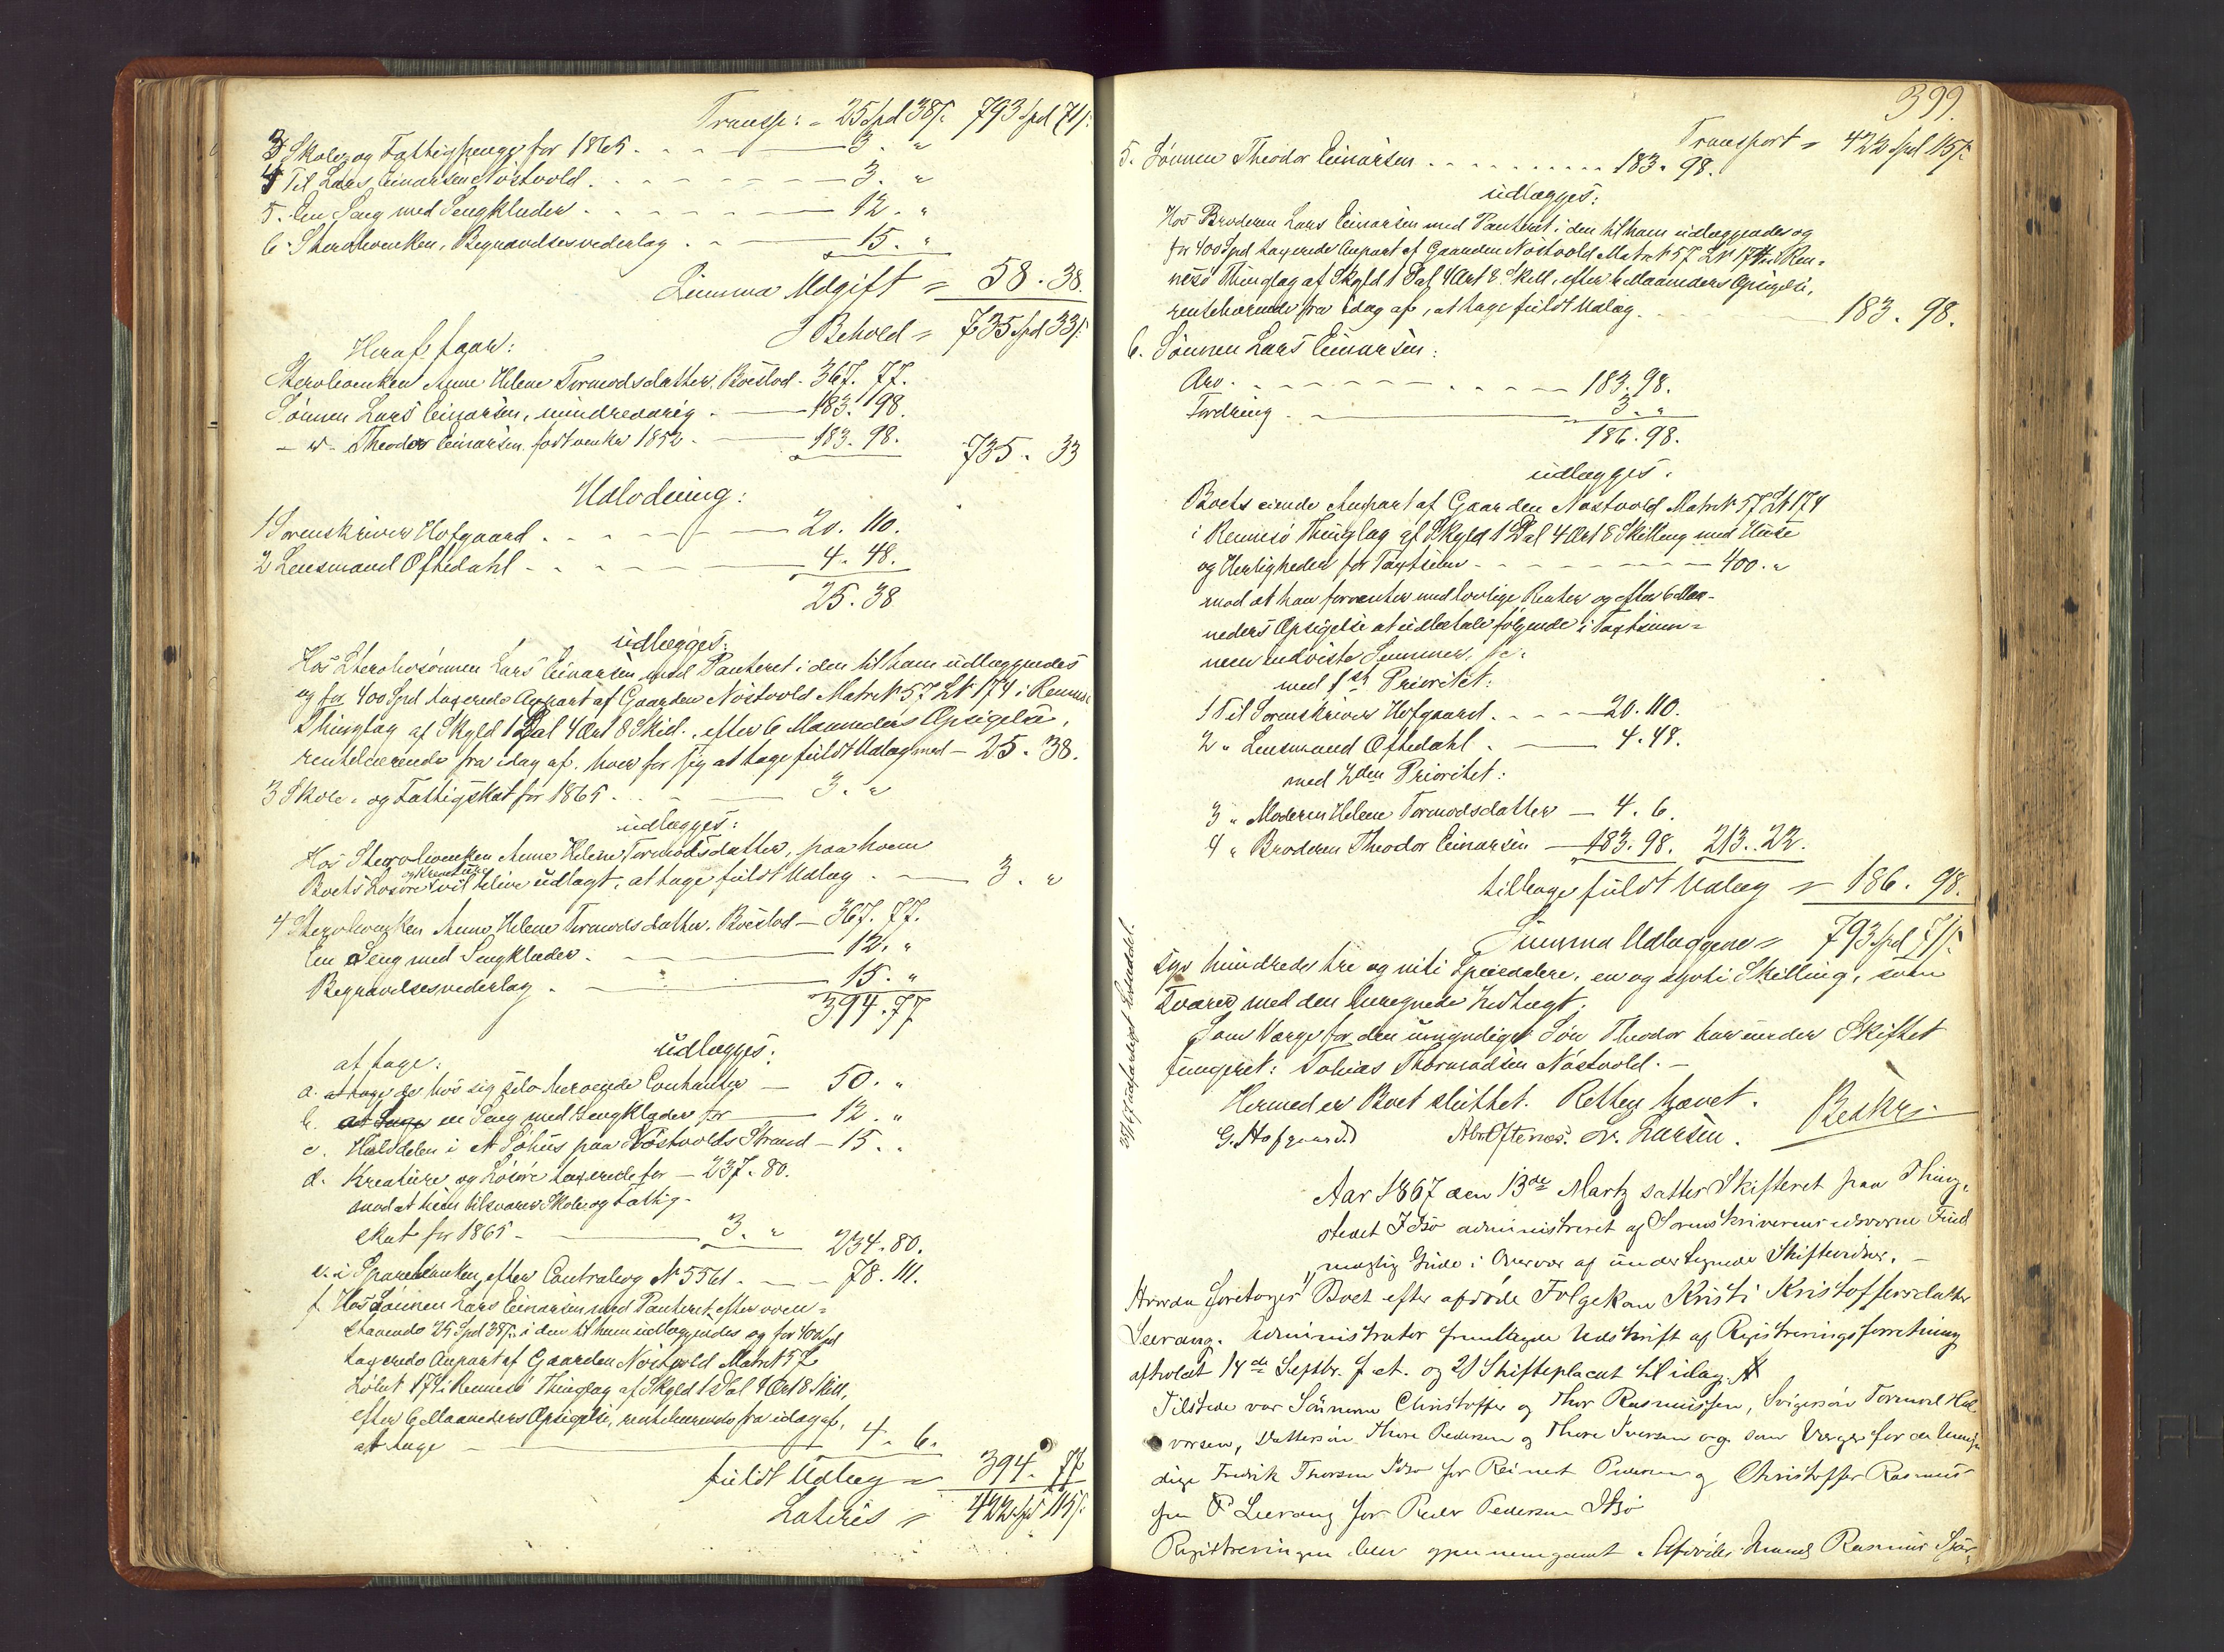 Transp: = 25 Spd 38 s. 793 Spd 71 s.
3 Skole og Fattigpenge for 1865 . 3. "
4 Til Lars Einarsen Nöstvold . 3. "
5. En Seng med Sengklæder . 12. "
6. Sterbenken, Begravelsesvederlag . 15. "
Summa Udgift = 58. 38.
I Behold = 735 Spd 33 s.
Heraf faar:
Sterboenken Anne Helene Tormodsdatter, Boeslod - 367. 77.
Sönnen Lars Einarsen, mindreaarig . 183. 98.
- " - Theodor Einarsen, født 1852 . 183. 98. 735. 33
Udlodning:
1 Sorenskriver Hofgaard . 20. 110.
2 Lensmand Oftedahl - 4. 48.
25. 38
udlægges:
Hos Sterbosönnen Lars Einarsen med Panteret i den til ham udlæggendes
og for 400 Spd taxerede Anpart af Gaarden Nöstvold Matr N 57 LN 174 i Rennesö
Thinglag af Skyld 1 Dal 4 Ort 8 Skill., efter 6 Maaneders Opsigelse,
rentebærende fra idag af, hver for sig at tage fuldt Udlæg med - 25. 38.
3 Skole- og Fattigskat for 1865 . 3. "
udlægges:
Hos Sterboenken Anne Helene Tormodsdatter, paa hvem
Boets Løsøre og Kreature vil blive udlagt, at tage fuldt Udlæg . 3. "
4 Sterboenken Anne Helene Tormodsdatter, Boeslod - 367. 77.
En Seng med Sengklæder . 12. "
Begravelsesvederlag . 15. "
394. 77
udlægges:
at tage:
a. at tage de hos sig selv beroende Contanter - 50. "
b. at tage en Seng med Sengklæder for 12. "
c. Halvdelen i et Söhus paa Nöstvolds Strand - 15. "
d. Kreature og Lösöre taxerede for - 237. 80.
mod at hun tilsvarer Skole og Fattig-
skat for 1865 - 3. " 234. 80.
e. i Sparebanken, efter Contrabog N 5561 . 78. 111.
f. Hos Sönnen Lars Einarsen med Panteret efter oven-
staaende 25 Spd 38 s. i den til ham udlæggendes og for 400 Spd
taxerede Anpart af Gaarden Nöstvold Matr N 57
Löbn 174 i Rennesö Thinglag af Skyld 1 Dal 4 Ort 8 Skill,
efter 6 Maaneders Opsigelse, rentebærende fra idag af,
at tage - 4. 6.
fuldt Udlæg = 394. 77
Lateris = 422 Spd 115 s.
399.
Transport = 422 Spd 115 s.
5. Sönnen Theodor Einarsen . 183. 98.
udlægges:
Hos Broderen Lars Einarsen med Panteret i den til ham udlæggendes og
for 400 Spd taxerede Anpart af Gaarden Nöstvold Matr N 57 LN 174 i Ren-
nesö Thinglag af Skyld 1 Dal 4 Ort 8 Skill, efter 6 Maaneders Opsigelse,
rentebærende fra idag af, at tage fuldt Udlæg . 183. 98.
6. Sönnen Lars Einarsen:
Arv . 183. 98.
Fordring . 3. "
186. 98.
udlægges:
Boets eiende Anpart af Gaarden Nöstvold Matr N 57 LN 174
i Rennesö Thinglag af Skyld 1 Dal 4 Ort 8 Skilling med Huse
og Herligheder for Taxtsum - 400. "
mod at han forrenter med lovlige Renter og efter 6 Maa-
neders Opsigelse at udbetale følgende i Taxtsum-
men Summer,
med 1ste Prioritet:
1 Til Sorenskriver Hofgaard . 20. 110.
2 " Lensmand Oftedahl . 4. 48.
med 2den Prioritet:
3 " Moderen Helene Tormodsdatter - 4. 6.
4 " Broderen Theodor Einarsen - 183. 98. 213. 22.
tilbage fuldt Udlæg = 186. 98.
Summa Udlæggene = 793 Spd 71 s.
syv hundrede tre og niti Speciedaler, en og syvti Skilling, som
svarer med den beregnede Indtægt.
Som Værge for den umyndige Sön Theodor har under Skiftet
fungeret: Tobias Thormodsen Nöstvold. -
Hermed er Boet sluttet. Retten hævet.
G. Hofgaard Ab. Oftenæs. L. Larsen.
Aar 1867 den 13de Martz sattes Skifteret paa Thing-
stedet Idsö administreret af Sorenskriverens edsvorne Fuld
mægtig i Overvær af undertegnede Skiftevidner. -
Hvorda foretoges Boet efter afdöde Folgekone Kristi Kristoffersdatter
Leerang. Administrator fremlagde Udskrift af Registreringsforretning
afholdt 14de Septbr. f. A. og 2 Skifteplacat til idag.
Tilstede var Sönnerne Christoffer og Thor Rasmussen, Svigersön Tormod Hal
vorsen, Dattersön Thore Pedersen og Thore Iversen og som Værger for de Umyn
dige Fredrik Thorsen Idsö for Reinert Pedersen og Christoffer Rasmus
sen Leerang for Peder Pedersen Idsö
Registreringen blev gjennemgaaet. Afdödes Mand Rasmus